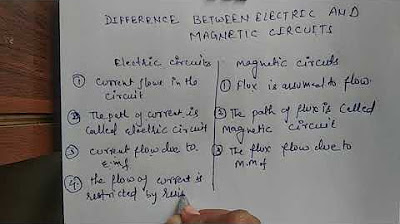 DIFFERENCE BETWEEN ELECTRIC AND
MAGNETIC CIRCUITS
Electric circuits
① current flows in the
circuit
② The path of current is
called electric circuit
③ current flow due to
e.m.f
④ the flow of current is
restricted by resis
magnetic circuits
① Flux is assumed to flow.
② The path of flux is called
magnetic circuit
③ The flux flow due to
M.M.f